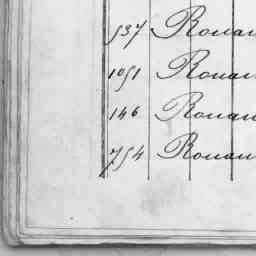 537 Rouan
1051 Rouan
146 Rouan
754 Rouan